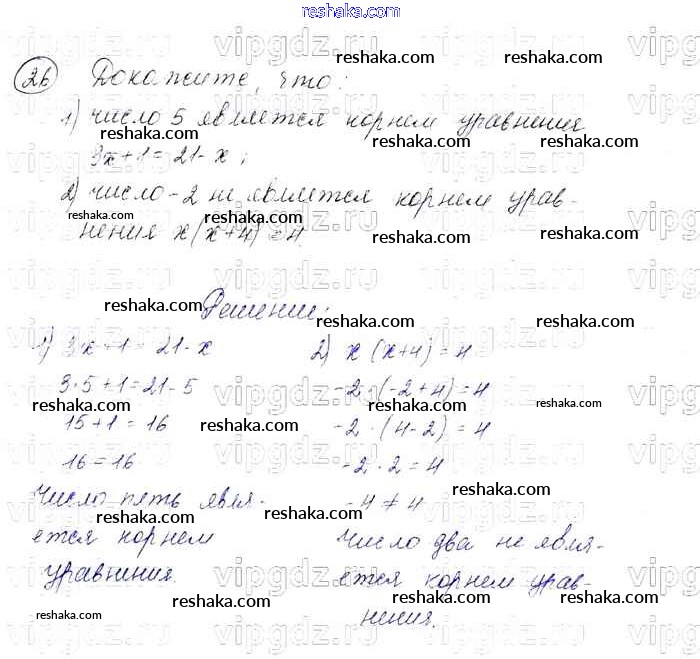 reshaka.com
26 Докажите, что:
1) число 5 является корнем уравнения
3x+1=21-x;
2) число -2 не является корнем урав-
нения x(x+4)=4
Решение:
1) 3x+1=21-x
3·5+1=21-5
15+1=16
16=16
Число пять явля-
ется корнем
уравнения.
2) x(x+4)=4
-2·(-2+4)=4
-2·(4-2)=4
-2·2=4
-4≠4
Число два не явля-
ется корнем урав-
нения.